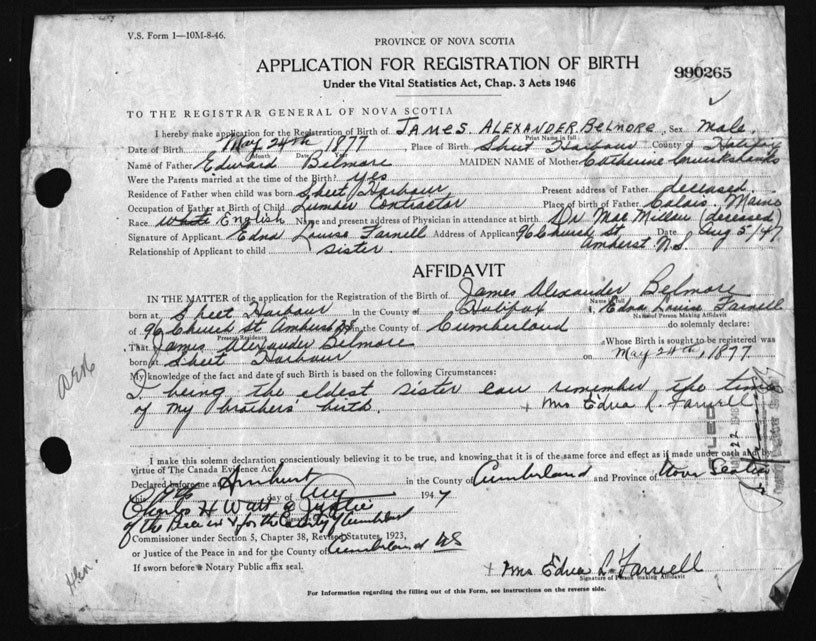 V.S. Form 1—10M-8-46.
PROVINCE OF NOVA SCOTIA
APPLICATION FOR REGISTRATION OF BIRTH
990265
Under the Vital Statistics Act, Chap. 3 Acts 1946
TO THE REGISTRAR GENERAL OF NOVA SCOTIA
I hereby make application for the Registration of Birth of JAMES ALEXANDER Belmore, Sex Male
Print Name in full
Date of Birth May 24th 1877, Place of Birth Sheet Harbour County of Halifax
Month Date Year
Name of Father Edward Belmore MAIDEN NAME of Mother Catherine Cruickshanks
Were the Parents married at the time of the Birth? yes
Residence of Father when child was born Sheet Harbour Present address of Father deceased
Occupation of Father at Birth of Child Lumber Contractor Place of birth of Father Calais, Maine
Race White English Name and present address of Physician in attendance at birth Dr Mac Millan (deceased)
Signature of Applicant Edna Louise Farnell Address of Applicant 96 Church St Date Aug 5/47
Relationship of Applicant to child sister. Amherst N.S.
AFFIDAVIT
IN THE MATTER of the application for the Registration of the Birth of James Alexander Belmore
Name in full
born at Sheet Harbour in the County of Halifax I, Edna Louise Farnell
Name of Person Making Affidavit
of 96 Church St Amherst NS in the County of Cumberland do solemnly declare:
Present Residence
That James Alexander Belmore Whose Birth is sought to be registered was
born at Sheet Harbour on May 24th, 1877
My knowledge of the fact and date of such Birth is based on the following Circumstances:
I being the eldest sister can remember the time
of my brothers' birth. + Mrs Edna L. Farnell
FILED
I make this solemn declaration conscientiously believing it to be true, and knowing that it is of the same force and effect as if made under oath and by
virtue of The Canada Evidence Act.
Declared before me at Amherst in the County of Cumberland and Province of Nova Scotia
this day of Aug 1947
Charles H Watt
of the Peace in & for the County of Cumberland
Commissioner under Section 5, Chapter 38, Revised Statutes, 1923,
or Justice of the Peace in and for the County of Cumberland NS
If sworn before a Notary Public affix seal.
+ Mrs Edna L. Farnell
Signature of Person making Affidavit
For Information regarding the filling out of this Form, see instructions on the reverse side.